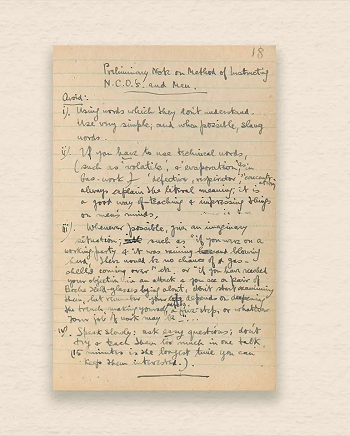 18
Preliminary Note on Method of Instructing
N.C.O.s. and Men.
Avoid:
i). Using words which they don't understand.
Use very simple, and when possible, slang
words.
ii) If you have to use technical words,
(such as 'volatile', & 'evaporation' in
Gas-work & 'defective, respirator'
always explain the literal meaning; it is
a good way of teaching & impressing things
on men's minds,
iii). Whenever possible, give an imaginary
situation; such as "if you were on a
working party & it was raining blowing
hard there would be no chance of a gas-
shells coming over" etc. or "if you have reached
your objective in an attack & you see a pair of
Boche field-glasses lying about, don't start examining
them, but remember your life depends on
the trench, making yourself a fire-step, or whatever
your job of work may be."
iv). Speak slowly: ask easy questions; don't
try & teach them too much in one talk
(15 minutes is the longest time you can
keep them interested.).